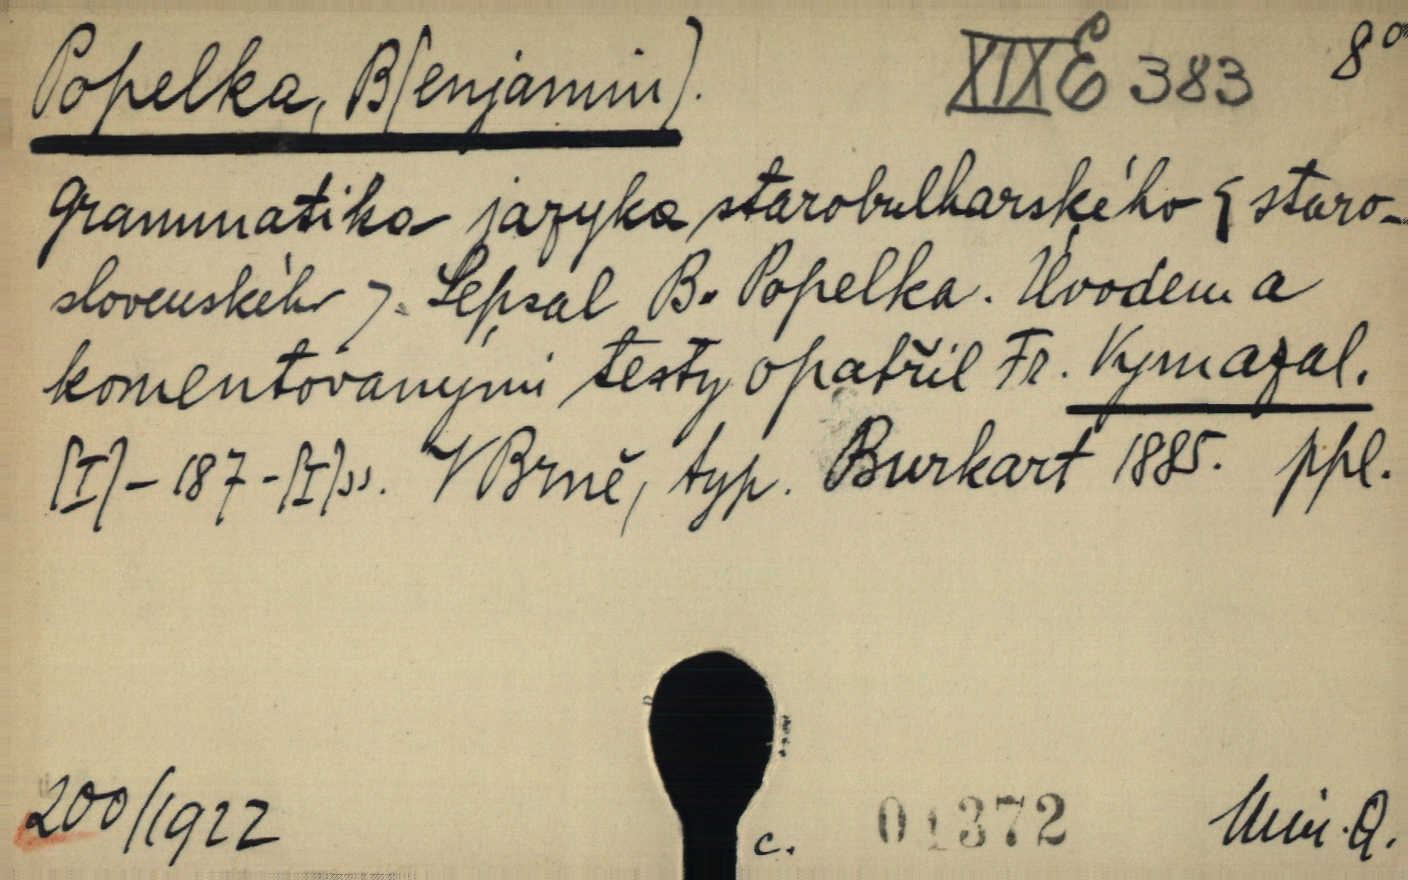 Popelka, B[enjamin]. XIX E 383 8°
Grammatika jazyka starobulharského (staro-
slovenského). Sepsal B. Popelka. Úvodem a
komentovanými texty opatřil Fr. Vymazal.
[I] - 187 - [I] ss. V Brně, typ. Burkart 1885. ppl.
200/1922 c. 01372